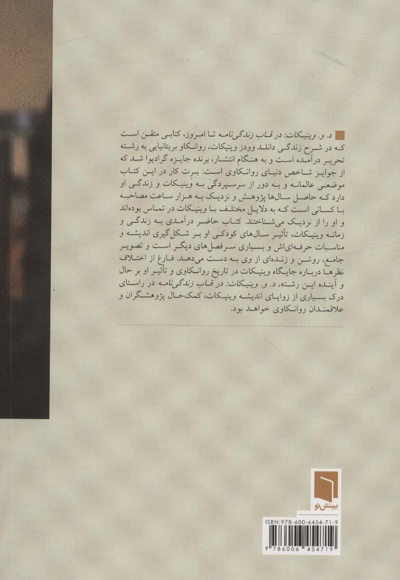 د. و. وینیکات: در قاب زندگی‌نامه تا امروز، کتابی متقن است
که در شرح زندگی دانلد وودز وینیکات، روانکاو بریتانیایی به رشته
تحریر درآمده است و به هنگام انتشار، برنده جایزه گرادیوا شد که
از جوایز شاخص دنیای روانکاوی است. برت کار در این کتاب
موضعی عالمانه و به دور از سرسپردگی به وینیکات و زندگی او
دارد که حاصل سال‌ها پژوهش و نزدیک به هزار ساعت مصاحبه
با کسانی است که به دلایل مختلف با وینیکات در تماس بوده‌اند
و او را از نزدیک می‌شناختند. کتاب حاضر درآمدی به زندگی و
زمانه وینیکات، تأثیر سال‌های کودکی او بر شکل‌گیری اندیشه و
مناسبات حرفه‌ای‌اش و بسیاری سرفصل‌های دیگر است و تصویر
جامع، روشن و زنده‌ای از وی به دست می‌دهد. فارغ از اختلاف
نظرها درباره جایگاه وینیکات در تاریخ روانکاوی و تأثیر او بر حال
و آینده این رشته، د. و. وینیکات: در قاب زندگی‌نامه در راستای
درک بسیاری از زوایای اندیشه وینیکات، کمک‌حال پژوهشگران و
علاقمندان روانکاوی خواهد بود.
بینش نو
ISBN: 978-600-6454-71-9
9 786006 454719